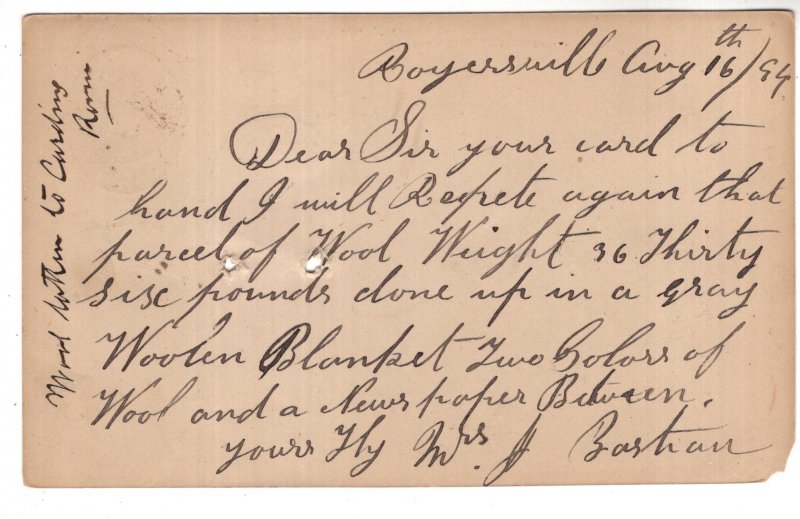 Boyersville Aug 16th/94
Dear Sir your card to
hand I will Repete again that
parcel of Wool Weight 36 Thirty
six pounds done up in a gray
Woolen Blanket Two Colors of
Wool and a Newspaper Between.
yours Tly Mrs J Bastian
Wool taken to Carding
Room